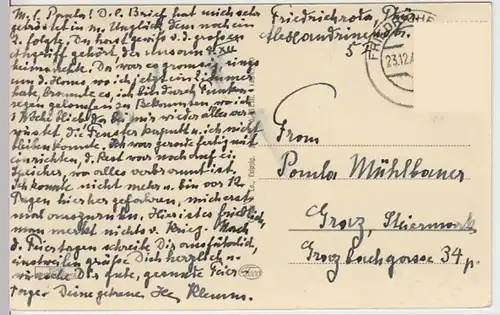 M. l. Pamla! D. l. Brief hat mich sehr
getröstet in m. Unglück. Dem noch ein
2. folgte. Du hast gewiss v. d. grossen
gehört, der unsere
heimsuchte. Da war es grausig, rings
um d. Home wo ich jetzt ein Zimmer
habe, brannte es, ich bin durch Funken-
regen gelaufen zu Bekannten, wo ich
1 Woche blieb, da bei mir wieder alles ver-
wüstet die Fenster kaputt u. ich nicht
bleiben konnte. Ich war gerade fertig mit
einrichten, d. Rest war noch auf ein
Speicher, wo alles verbrannt ist.
Ich konnte nicht mehr u. bin vor 12
Tagen hierher gefahren, mich erst
mal auszuruhen. Hier ist es friedlich,
man merkt nichts v. Krieg. Nach
d. Feiertagen schreibe Dir ausführlich,
einstweilen grüße Dich herzlich u.
wünsche Dir gute, gesunde Feier-
tage Deine getreue Klemm.
Friedrichroda, Thür.
Alexandrinenstr.
5
23.12.4
Leipzig
Frau
Pamla Mühlbauer
Graz, Steiermark
Grazbachgasse 34 p.